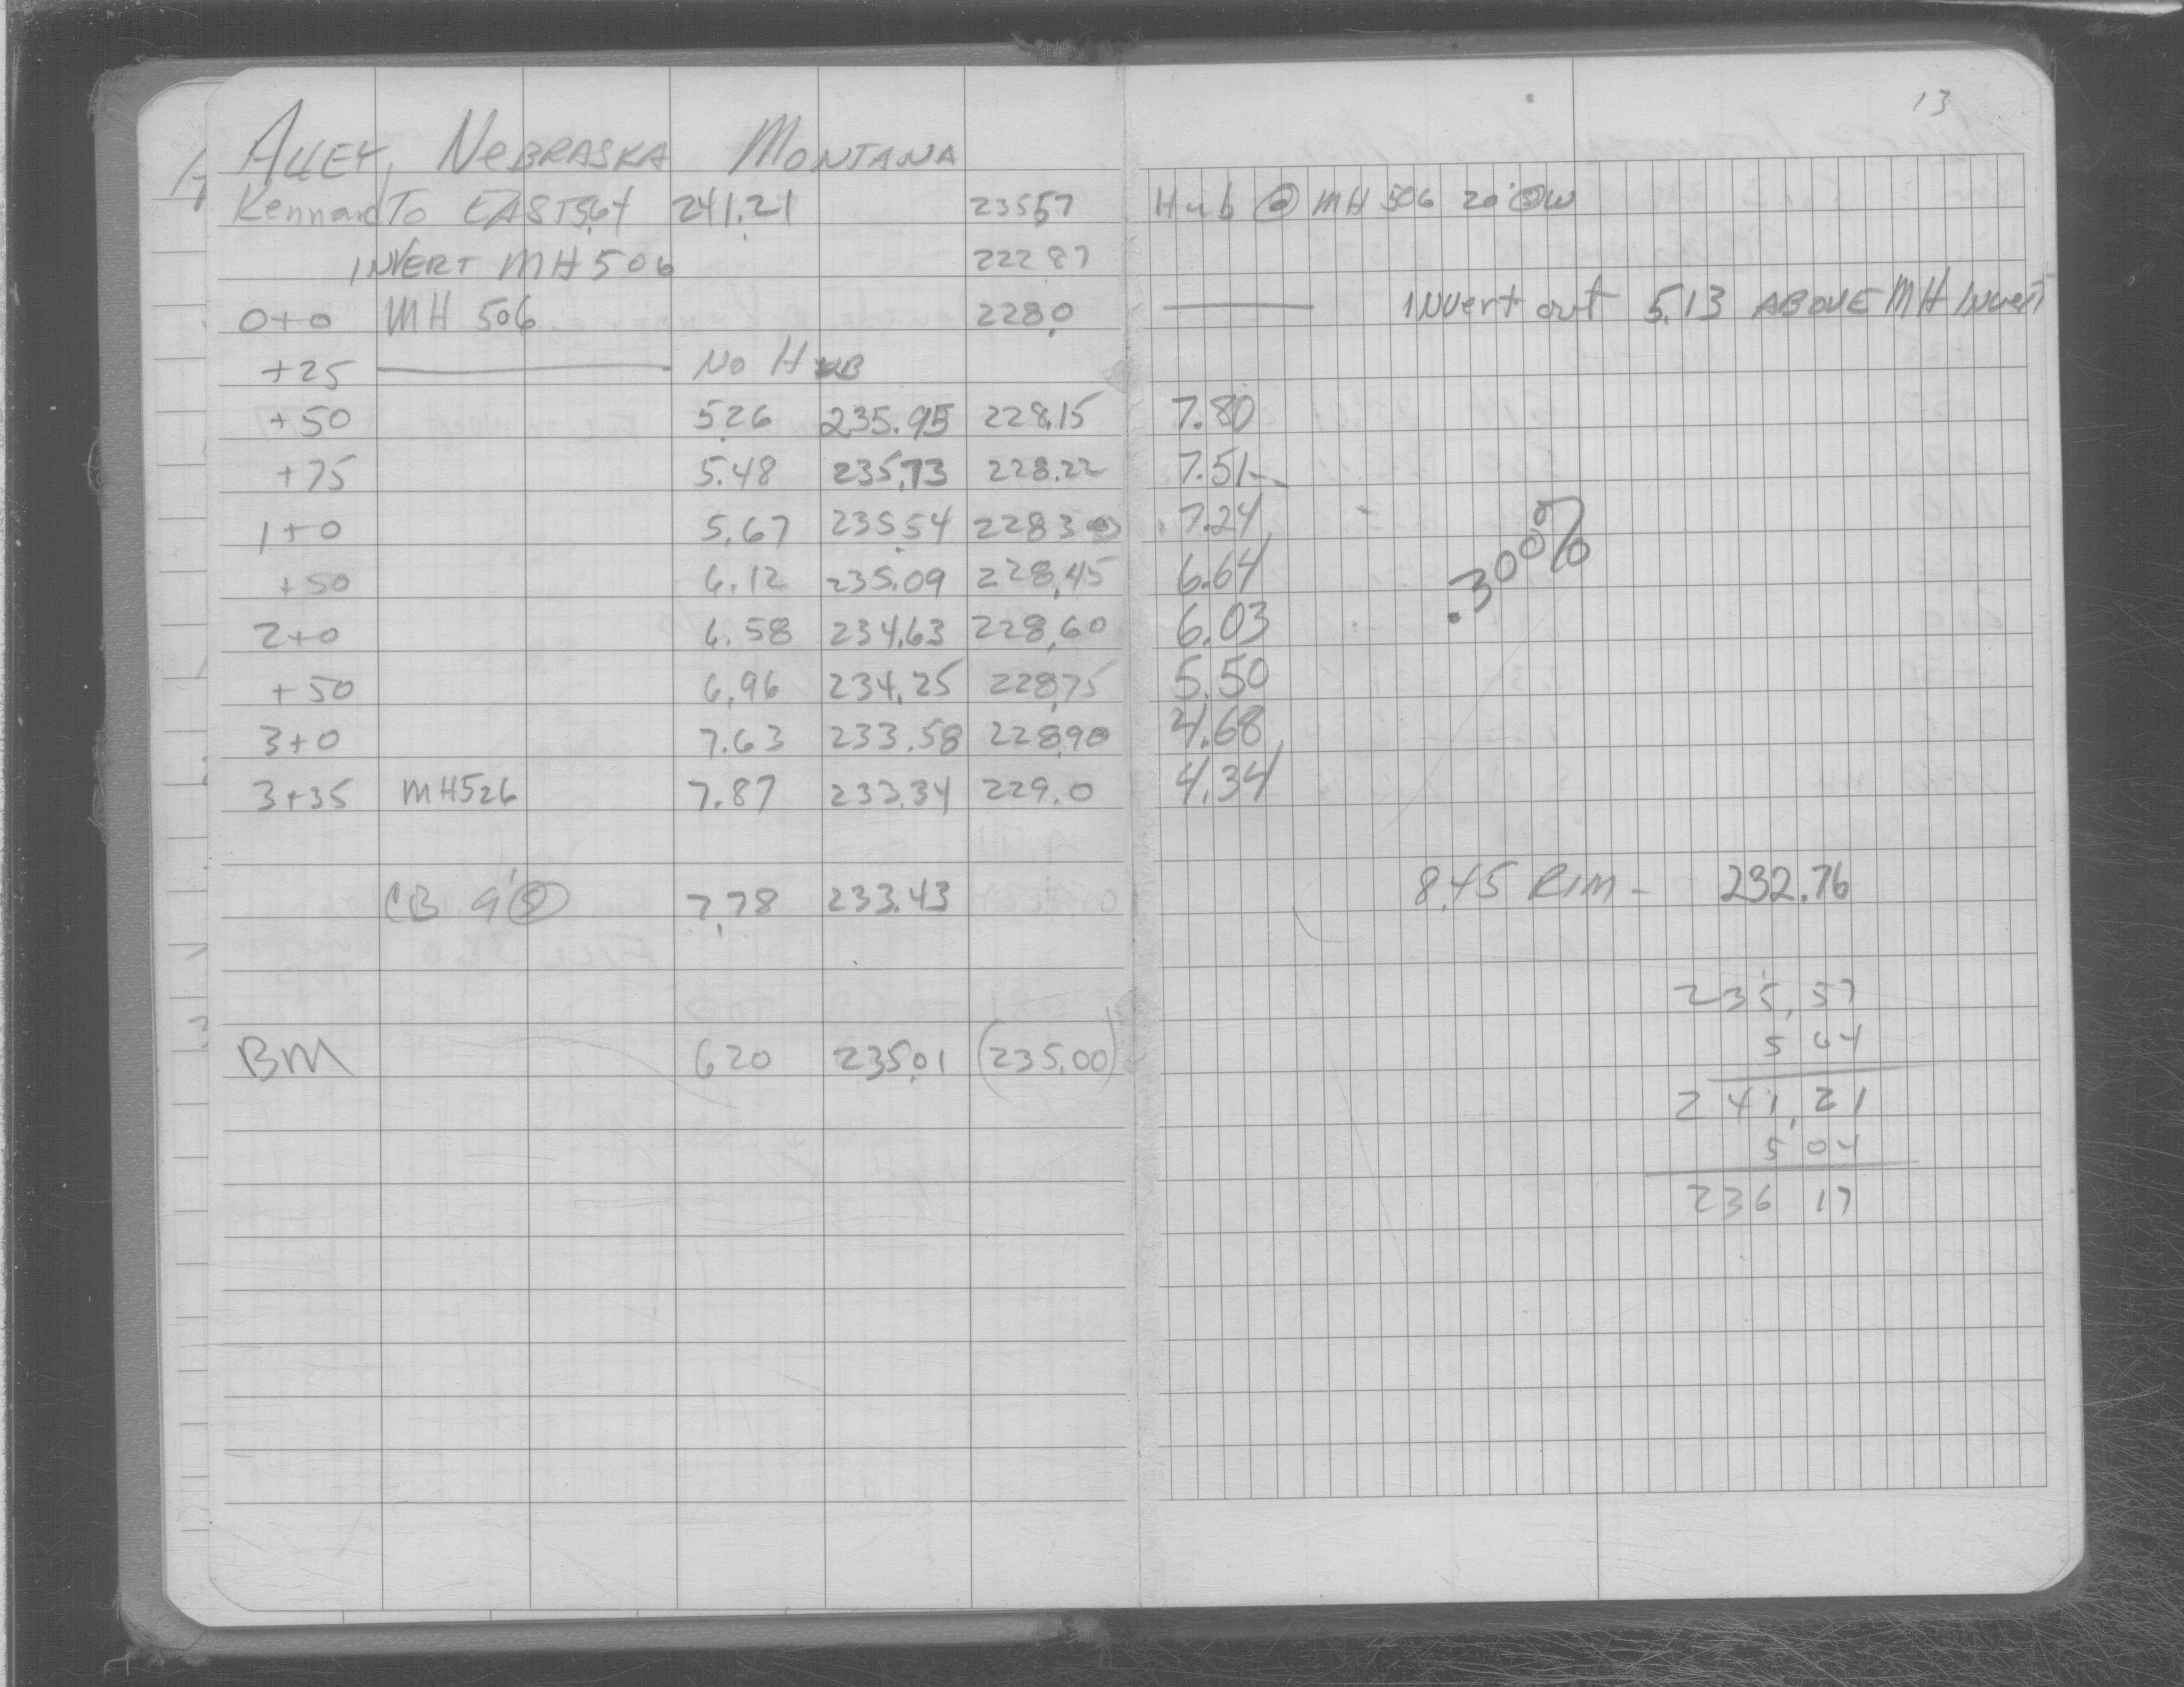 13
ALLEY, NEBRASKA MONTANA
Kennard To EAST 5.64 241.21 235.57 Hub @ MH 506 20' @W
INVERT MH 506 222.87
0+0 MH 506 228.0 INVert out 5.13 ABOVE MH Invert
+25 No HUB
+50 5.26 235.95 228.15 7.80
+75 5.48 235.73 228.22 7.51
1+0 5.67 235.54 228.30 7.24
+50 6.12 235.09 228.45 6.64
.300%
2+0 6.58 234.63 228.60 6.03
+50 6.96 234.25 228.75 5.50
3+0 7.63 233.58 228.90 4.68
3+35 MH526 7.87 233.34 229.0 4.34
CB 9' 7.78 233.43 8.45 RIM - 232.76
235.57
5 64
BM 6 20 235.01 (235.00)
241.21
5 04
236 17